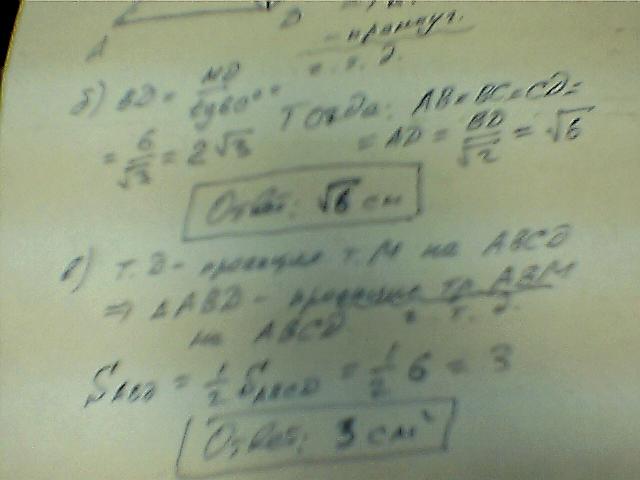 A D
- прямоуг.
ч. т. д.
б) BD = MD / tg60° =
= 6/√3 = 2√3 Тогда: AB = BC = CD =
= AD = BD/√2 = √6
Ответ: √6 см
в) т. D - проекция т. M на ABCD
⇒ △ABD - проекция тр. ABM
на ABCD ч. т. д.
= 1/2 S_ABCD = 1/2 6 = 3
Ответ: 3 см²